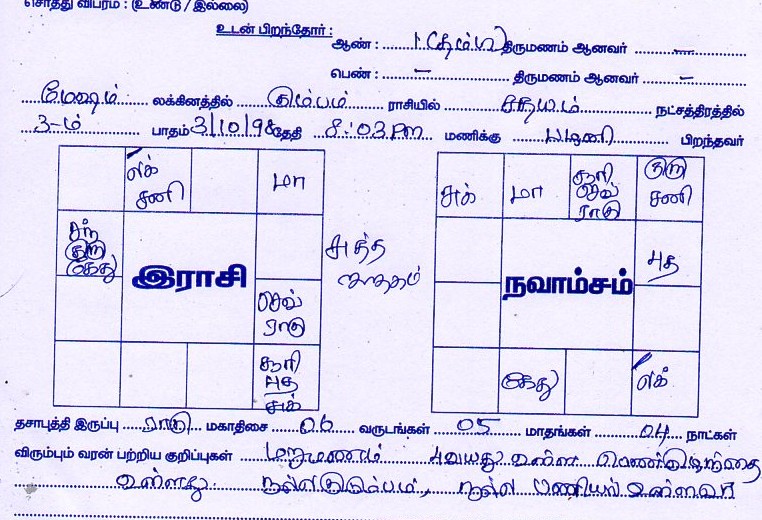 சொத்து விபரம் : (உண்டு / இல்லை)
உடன் பிறந்தோர் :
ஆண் : 1 திருமணம் ஆனவர் —
பெண் : – திருமணம் ஆனவர் –
மேஷம் லக்கினத்தில் கும்பம் ராசியில் சதயம் நட்சத்திரத்தில்
3-ம் பாதம் 3/10/98 தேதி 8:03 PM மணிக்கு பிறந்தவர்
லக் சனி
மா
சந் குரு கேது
இராசி
செவ் ராகு
சூரி புத சுக்
சுத்த ஜாதகம்
சுக்
மா
சூரி செவ் ராகு
குரு சனி
புத
நவாம்சம்
கேது
லக்
தசாபுத்தி இருப்பு ராகு மகாதிசை 06 வருடங்கள் 05 மாதங்கள் 04 நாட்கள்
விரும்பும் வரன் பற்றிய குறிப்புகள் மறுமணம் 4வயது உள்ள பெண்குழந்தை
உள்ளது. நல்ல குடும்பம், நல்ல பணியில் உள்ளவர்